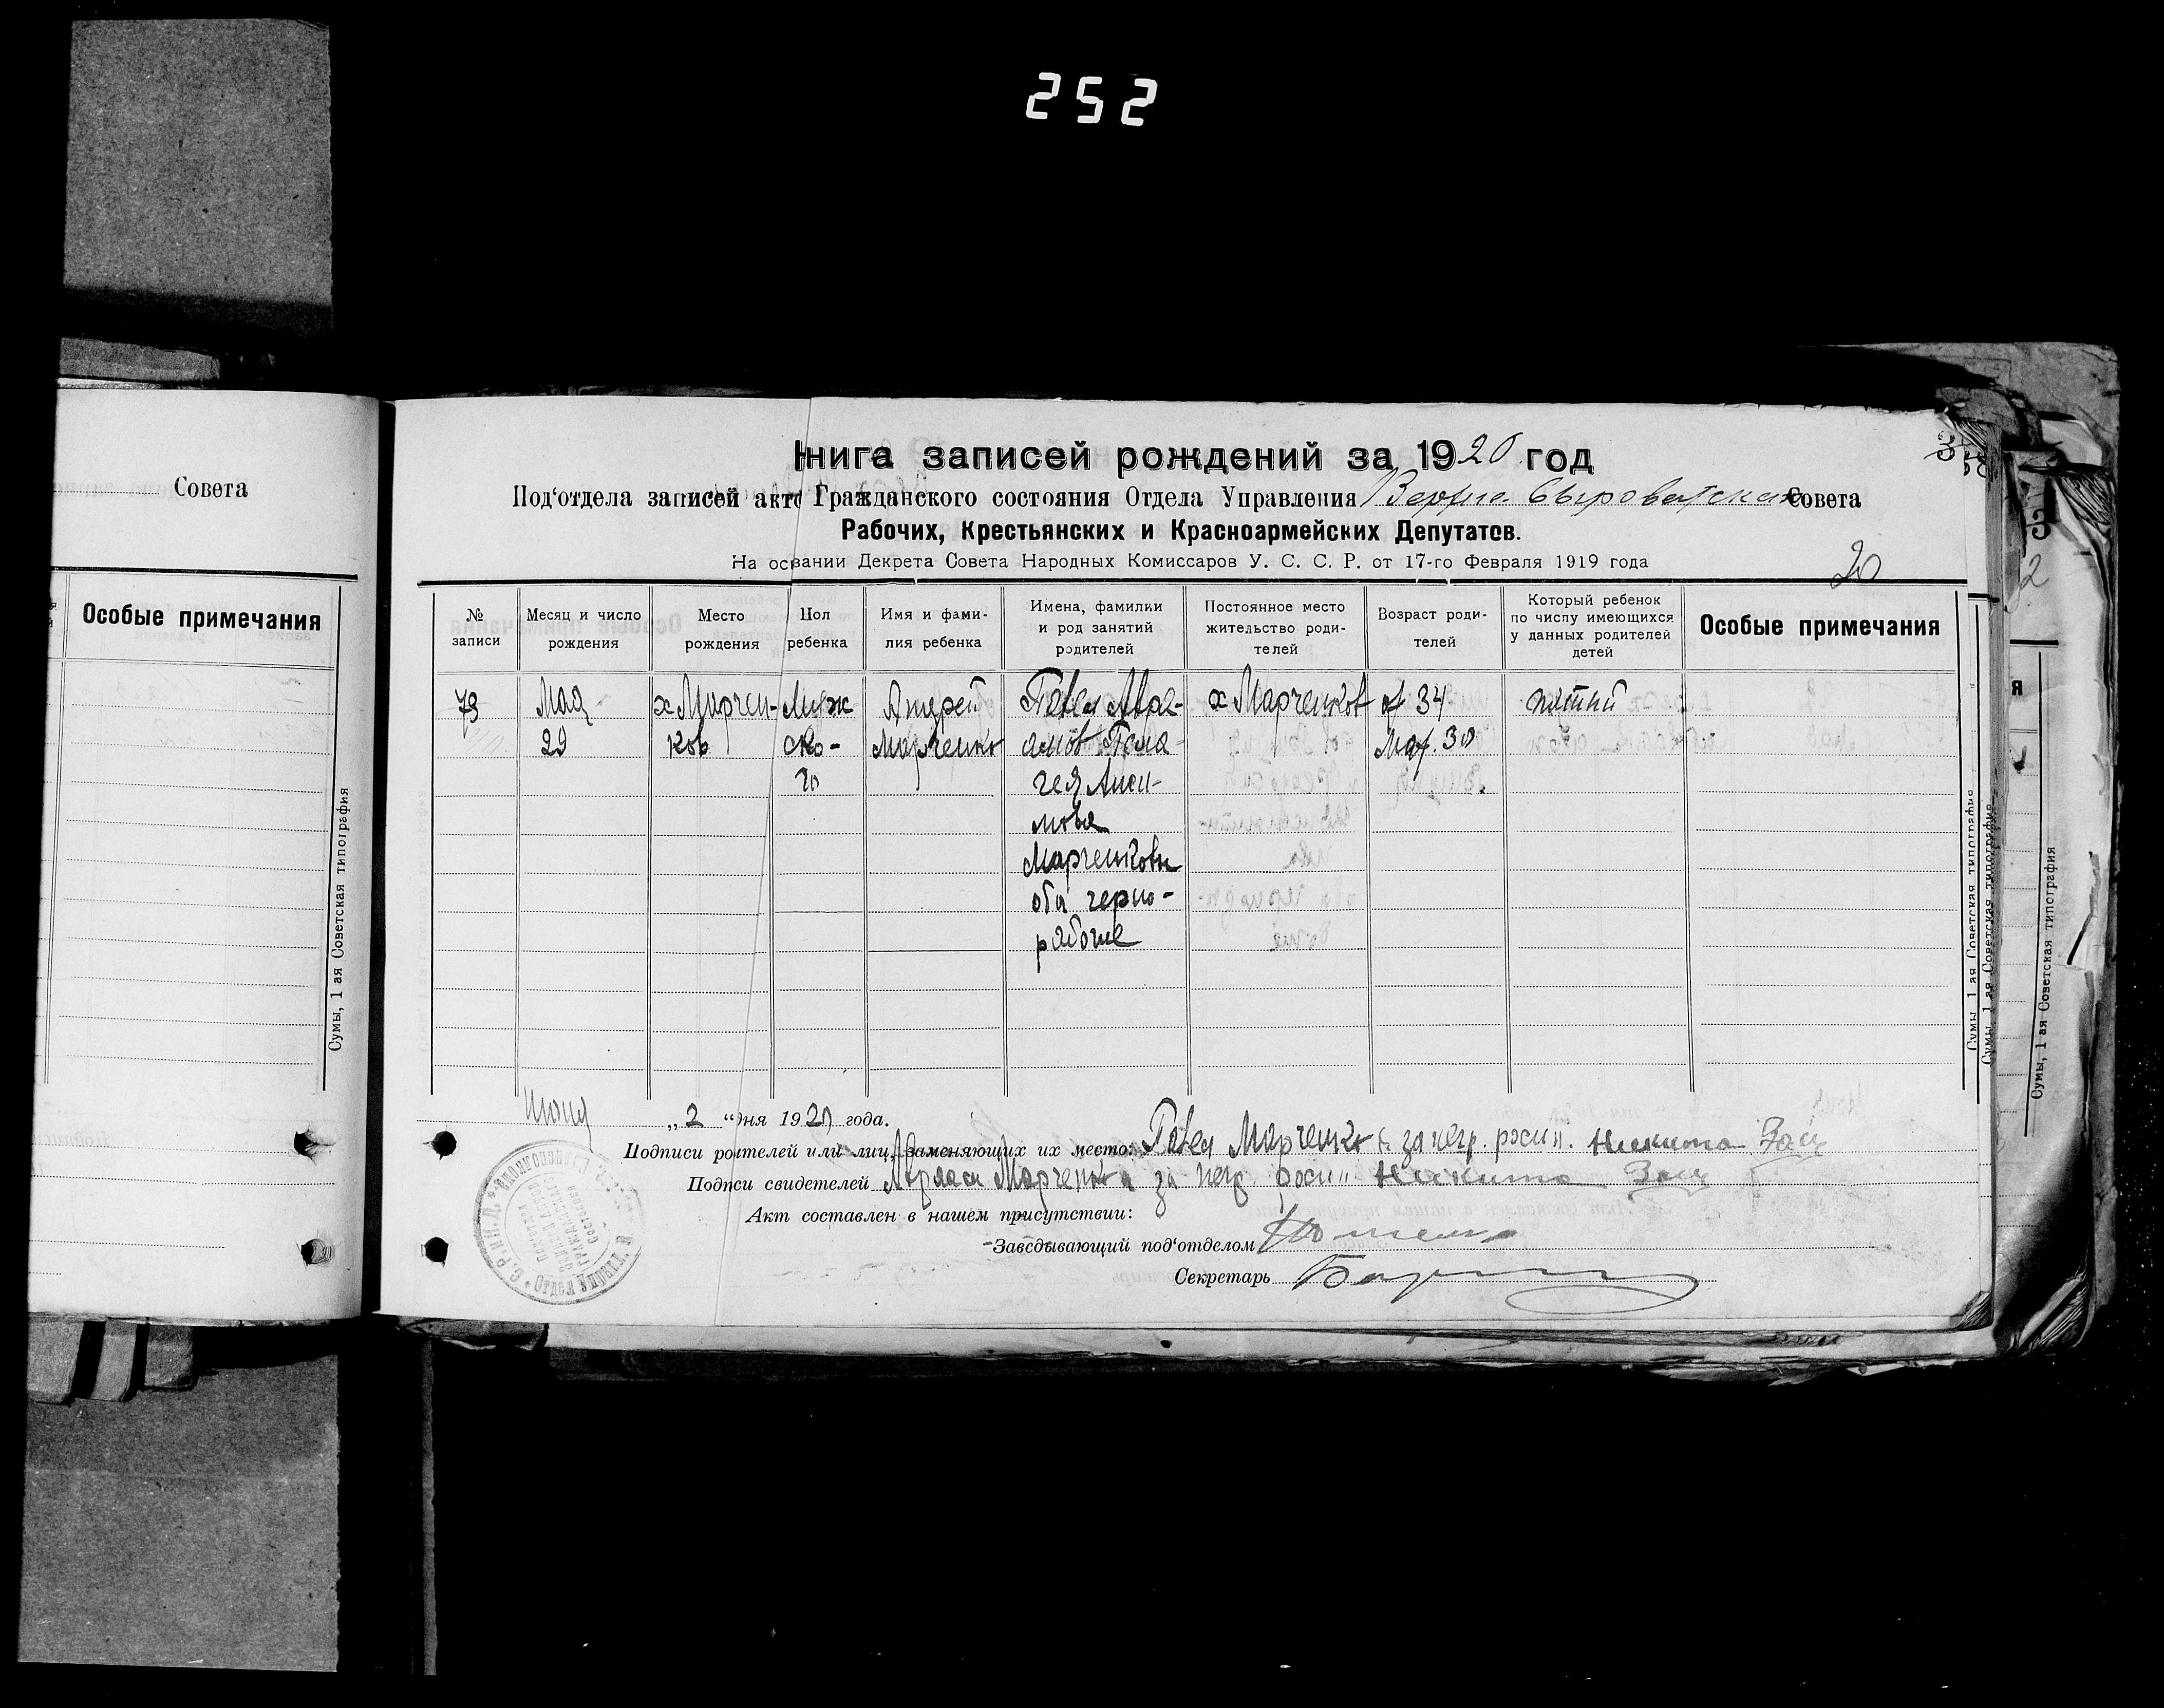 252
Совета
Особые примечания
Сумы, 1 ая Советская типография
Книга записей рождений за 1920 год
Под'отдела записей акто Гражданского состояния Отдела Управления Верхне-Сыроватская Совета
Рабочих, Крестьянских и Красноармейских Депутатов.
На основании Декрета Совета Народных Комиссаров У. С. С. Р. от 17-го Февраля 1919 года
20
№ записи
Месяц и число рождения
Место рождения
Пол ребенка
Имя и фамилия ребенка
Имена, фамилии и род занятий родителей
Постоянное место жительство родителей
Возраст родителей
Который ребенок по числу имеющихся у данных родителей детей
Особые примечания
79
Мая
29
х Марчен-
ков
Муж
ско-
го
Андрей
Марченко
Павел Авра-
амов Пела-
гея Анси-
мова
Марченковы
оба черно-
рабочие
х Марченков
от 34
мат. 30
пятый
Июня „2 “ дня 1920 года.
Подписи родителей или лиц, заменяющих их место: Павел Марченко а за негр. росп. Никита Зац
Подписи свидетелей Авраам Марченко а за негр. росп. Никита Зац
Акт составлен в нашем присутствии:
Заведывающий под'отделом
Секретарь
Сумы, 1 ая Советская типография
Сумы, 1 ая Советская типография
Сумы, 1 ая Советская типография